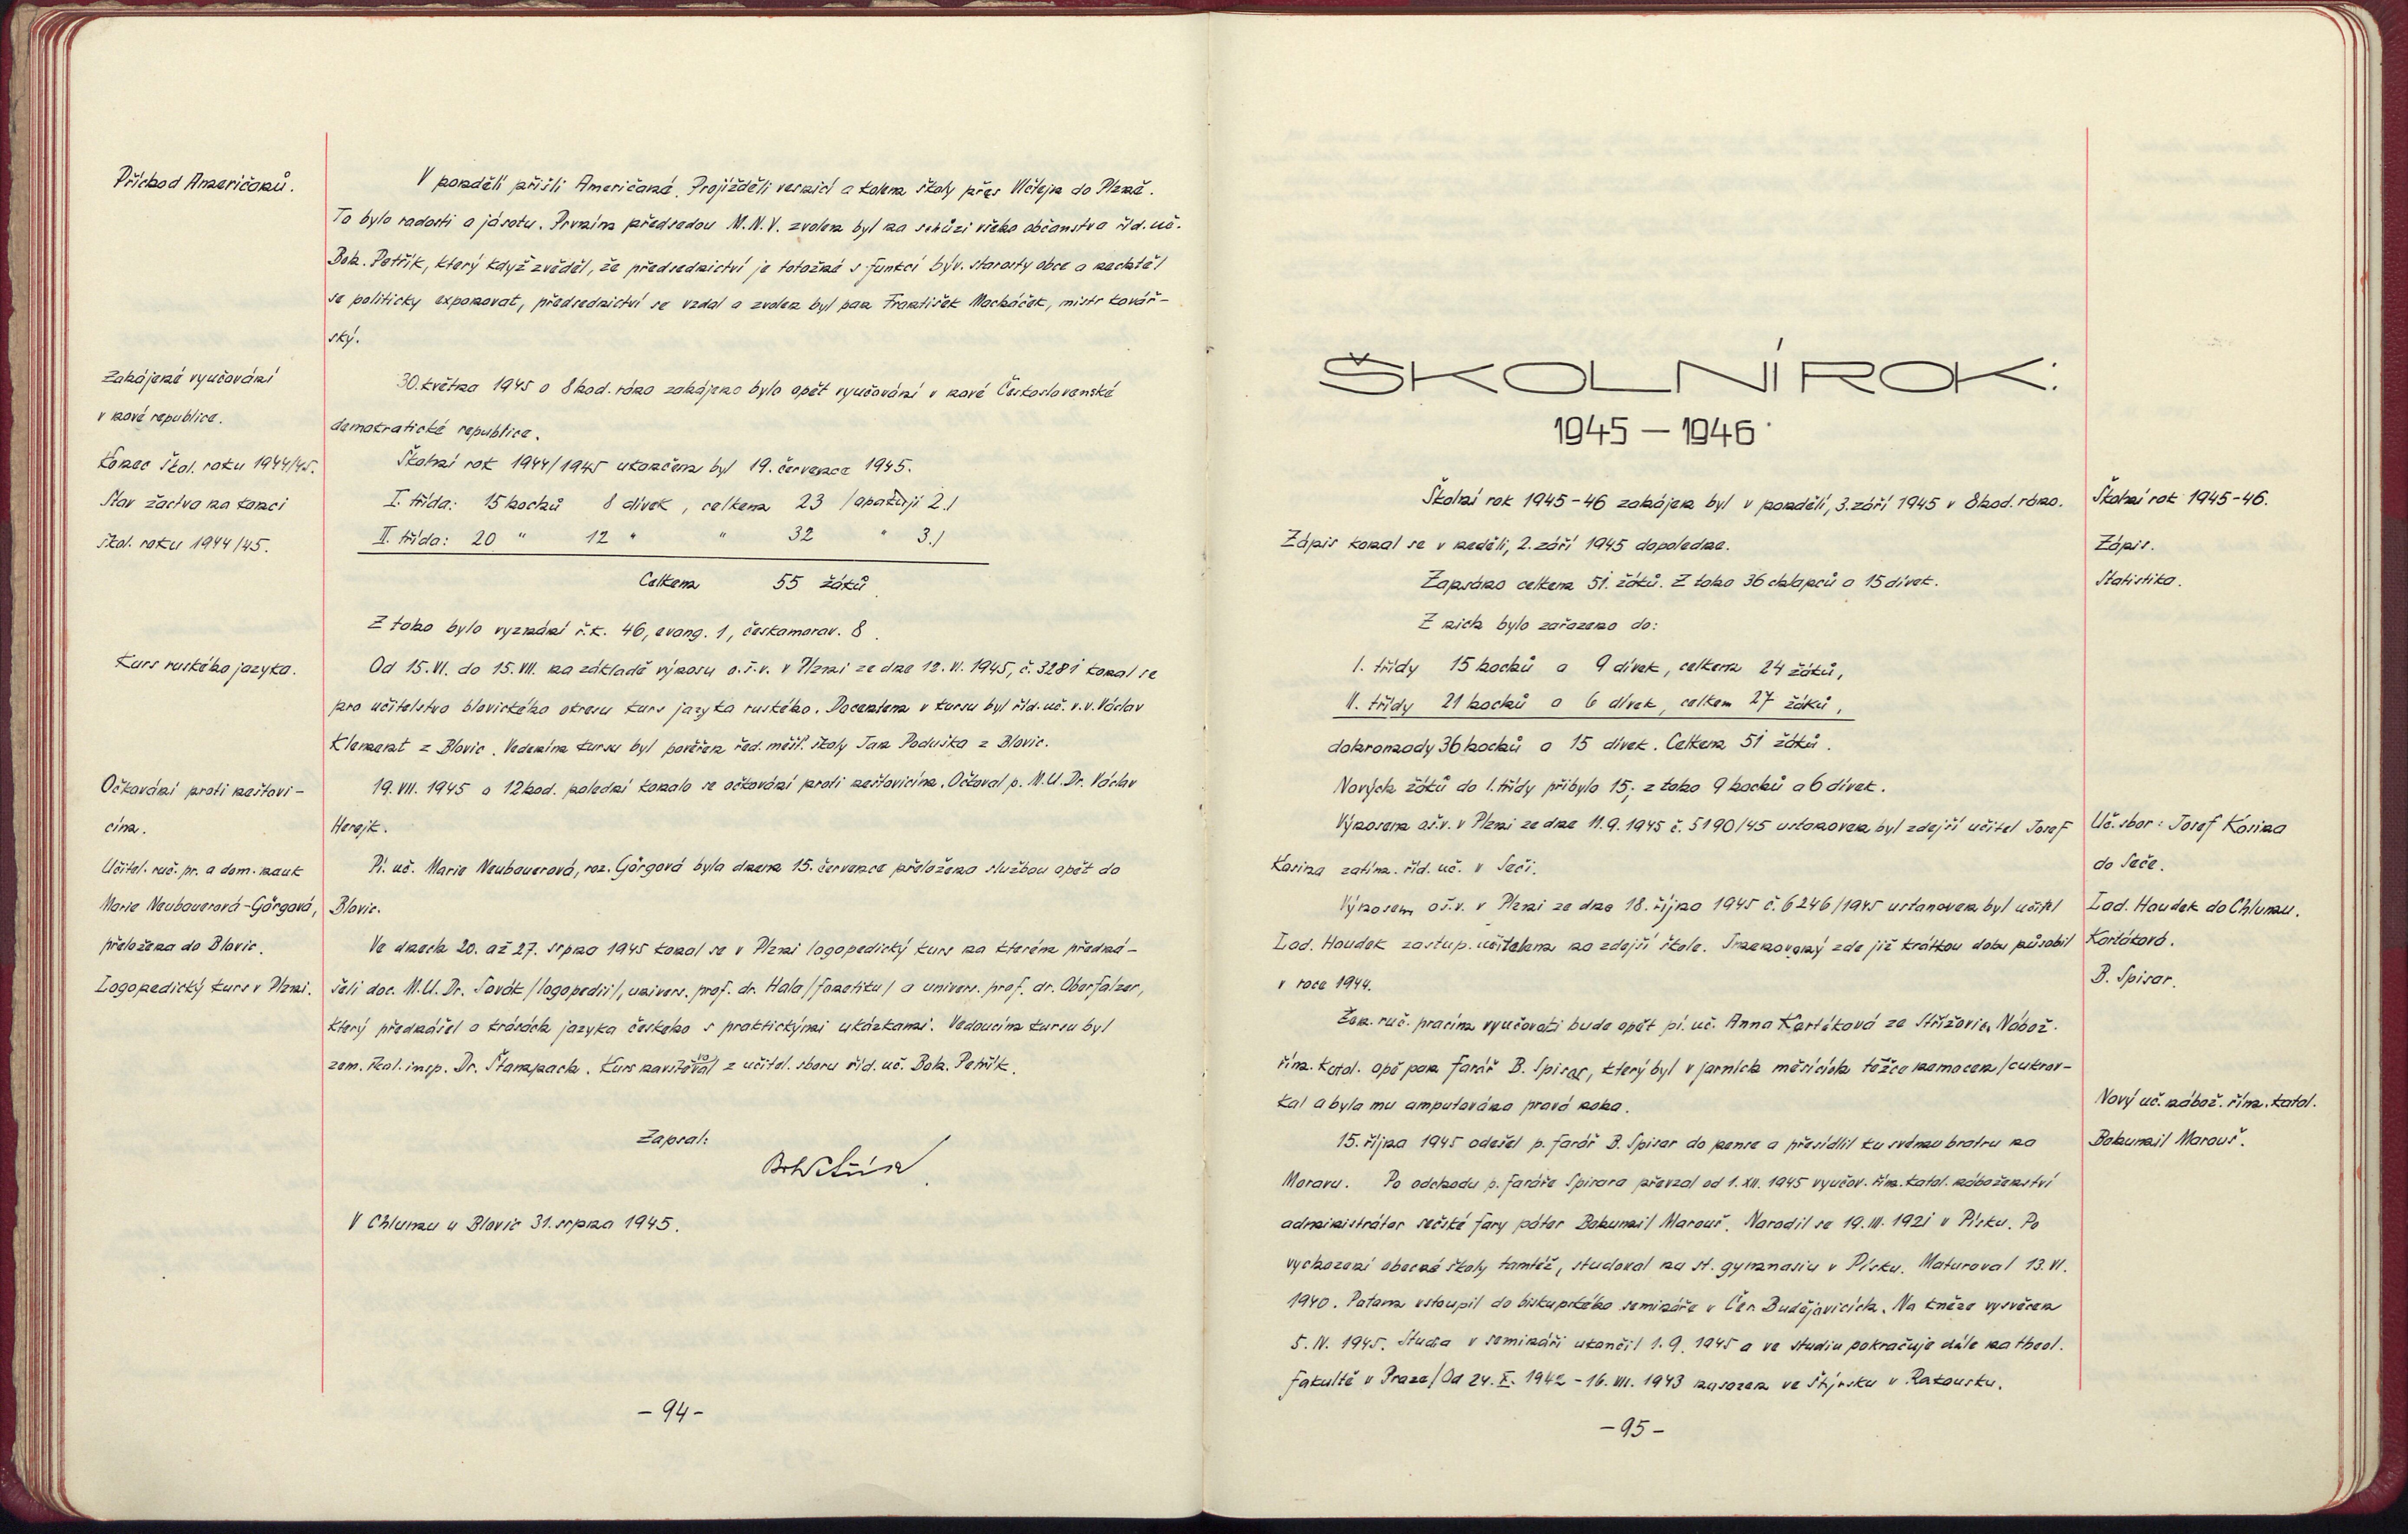 Příchod Američanů.
V pondělí přišli Američané. Projížděli vesnicí a kolem školy přes Vlčtejn do Plzně.
To bylo radosti a jásotu. Prvním předsedou M.N.V. zvolen byl na schůzi všeho občanstva říd. uč.
Boh. Petřík, který když zvěděl, že předsednictví je totožné s funkcí býv. starosty obce a nechtěl
se politicky exponovat, předsednictví se vzdal a zvolen byl pan František Macháček, mistr kovář-
ský.
Zahájené vyučování
v nové republice.
30. května 1945 o 8 hod. ráno zahájeno bylo opět vyučování v nové Československé
demokratické republice.
Konec škol. roku 1944/45.
Školní rok 1944/1945 ukončen byl 19. července 1945.
Stav žactva na konci
škol. roku 1944/45.
I. třída: 15 hochů 8 dívek, celkem 23 /opakují 2./
II. třída: 20 " 12 " " 32 " 3./
Celkem 55 žáků.
Z toho bylo vyznání ř.k. 46, evang. 1, českomorav. 8.
Kurs ruského jazyka.
Od 15.VI. do 15.VII. na základě výnosu o.š.v. v Plzni ze dne 12.VI.1945, č. 3281 konal se
pro učitelstvo blovického okresu kurs jazyka ruského. Docentem v kursu byl říd. uč. v.v. Václav
Klement z Blovic. Vedením kursu byl pověřen řed. měšť. školy Jan Poduška z Blovic.
Očkování proti neštovi-
cím.
19.VII. 1945 o 12 hod. polední konalo se očkování proti neštovicím. Očkoval p. M.U.Dr. Václav
Herejk.
Učitel. ruč. pr. a dom. nauk
Marie Neubauerová-Görgová,
přeložena do Blovic.
Pí. uč. Marie Neubauerová, roz. Görgová byla dnem 15. července přeložena službou opět do
Blovic.
Logopedický kurs v Plzni.
Ve dnech 20. až 27. srpna 1945 konal se v Plzni logopedický kurs na kterém předná-
šeli doc. M.U.Dr. Sovák /logopedii/, univers. prof. dr. Hala /fonetiku/ a univers. prof. dr. Oberfalzer,
který přednášel o krásách jazyka českého s praktickými ukázkami. Vedoucím kursu byl
zem. škol. insp. Dr. Štampach. Kurs navštěvoval z učitel. sboru říd. uč. Boh. Petřík.
Zapsal:
V Chlumu u Blovic 31. srpna 1945.
- 94 -
ŠKOLNÍ ROK:
1945 - 1946
Školní rok 1945-46 zahájen byl v pondělí, 3. září 1945 v 8 hod. ráno.
Školní rok 1945-46.
Zápis konal se v neděli, 2. září 1945 dopoledne.
Zápis.
Zapsáno celkem 51. žáků. Z toho 36 chlapců a 15 dívek.
Statistika.
Z nich bylo zařazeno do:
I. třídy 15 hochů a 9 dívek, celkem 24 žáků,
II. třídy 21 hochů a 6 dívek, celkem 27 žáků,
dohromady 36 hochů a 15 dívek. Celkem 51 žáků.
Nových žáků do I. třídy přibylo 15; z toho 9 hochů a 6 dívek.
Výnosem o.š.v. v Plzni ze dne 11.9.1945 č. 5190/45 ustanoven byl zdejší učitel Josef
Kosina zatím. říd. uč. v Seči.
Uč. sbor: Josef Kosina
do Seče.
Výnosem o.š.v. v Plzni ze dne 18. října 1945 č. 6246/1945 ustanoven byl učitel
Lad. Houdek zastup. učitelem na zdejší škole. Jmenovaný zde již krátkou dobu působil
v roce 1944.
Lad. Houdek do Chlumu.
Korťáková.
B. Spisar.
Žen. ruč. pracím vyučovati bude opět pí. uč. Anna Korťáková ze Střížovic. Nábož.
řím. katol. opě pan farář B. Spisar, který byl v jarních měsících těžce nemocen /cukrov-
ka/ a byla mu amputována pravá noha.
15. října 1945 odešel p. farář B. Spisar do pense a přesídlil ku svému bratru na
Moravu. Po odchodu p. faráře Spisara převzal od 1.XII.1945 vyučov. řím. katol. náboženství
administrátor sečské fary páter Bohumil Marouš. Narodil se 19.III. 1921 v Písku. Po
Nový uč. nábož. řím. katol.
Bohumil Marouš.
vychození obecné školy tamtéž, studoval na st. gymnasiu v Písku. Maturoval 13.VI.
1940. Potom vstoupil do biskupského semináře v Čes. Budějovicích. Na kněze vysvěcen
5.IV. 1945. Studia v semináři ukončil 1.9.1945 a ve studiu pokračuje dále na theol.
fakultě v Praze /Od 24.X. 1942 - 16.VII. 1943 nasazen ve Štýrsku v Rakousku.
- 95 -